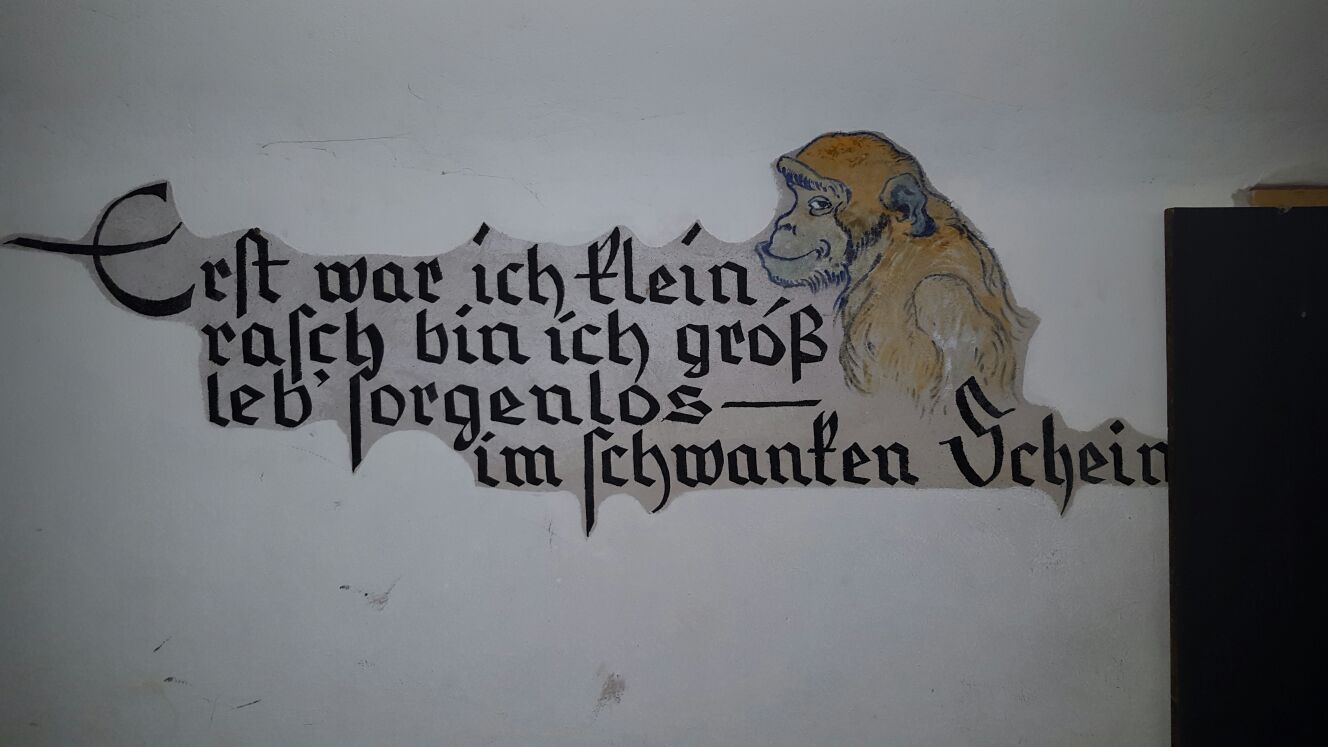 Erſt war ich klein
raſch bin ich groß
leb' ſorgenlos—
im ſchwanken Schein